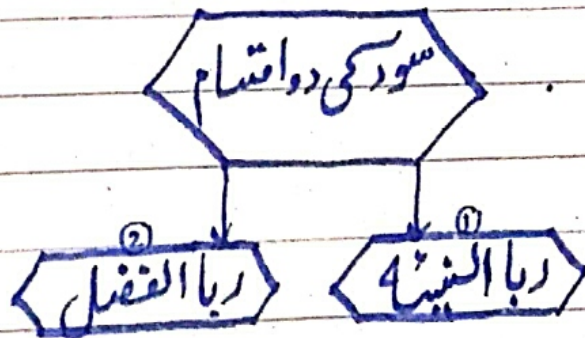 سود کی دو اقسام
①
ربا النسیئہ
②
ربا الفضل